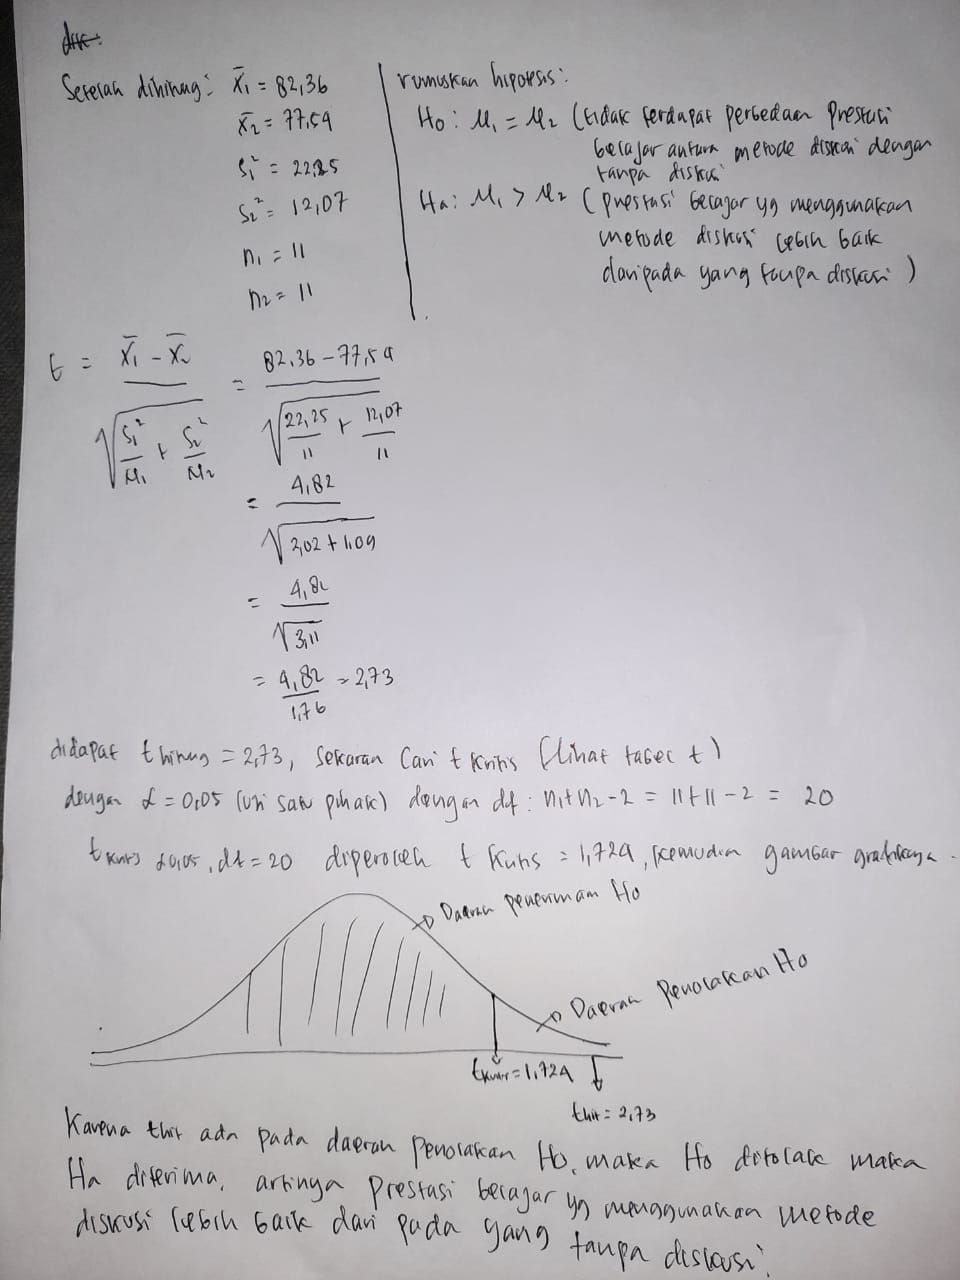 Setelah dihitung: x̄1 = 82,36
x̄2 = 77,54
S1² = 22,25
S2² = 12,07
n1 = 11
n2 = 11
rumuskan hipotesis:
Ho: μ1 = μ2 (tidak terdapat perbedaan prestasi
belajar antara metode diskusi dengan
tanpa diskusi
Ha: μ1 > μ2 (prestasi belajar yg menggunakan
metode diskusi lebih baik
daripada yang tanpa diskusi)
t = (x̄1 - x̄2) / √(S1²/n1 + S2²/n2) = (82,36 - 77,54) / √(22,25/11 + 12,07/11)
= 4,82 / √(2,02 + 1,09)
= 4,82 / √3,11
= 4,82 / 1,76 = 2,73
didapat t hitung = 2,73, sekaran cari t kritis (lihat tabel t)
dengan α = 0,05 (uji satu pihak) dengan df: n1+n2-2 = 11+11-2 = 20
t kritis α0,05, df = 20 diperoleh t kritis = 1,724, kemudian gambar grafiknya.
Daerah penerimaan Ho
Daerah Penolakan Ho
t kritis = 1,724
thit = 2,73
Karena thit ada pada daerah penolakan Ho, maka Ho ditolak maka
Ha diterima, artinya prestasi belajar yg menggunakan metode
diskusi lebih baik dari pada yang tanpa diskusi.